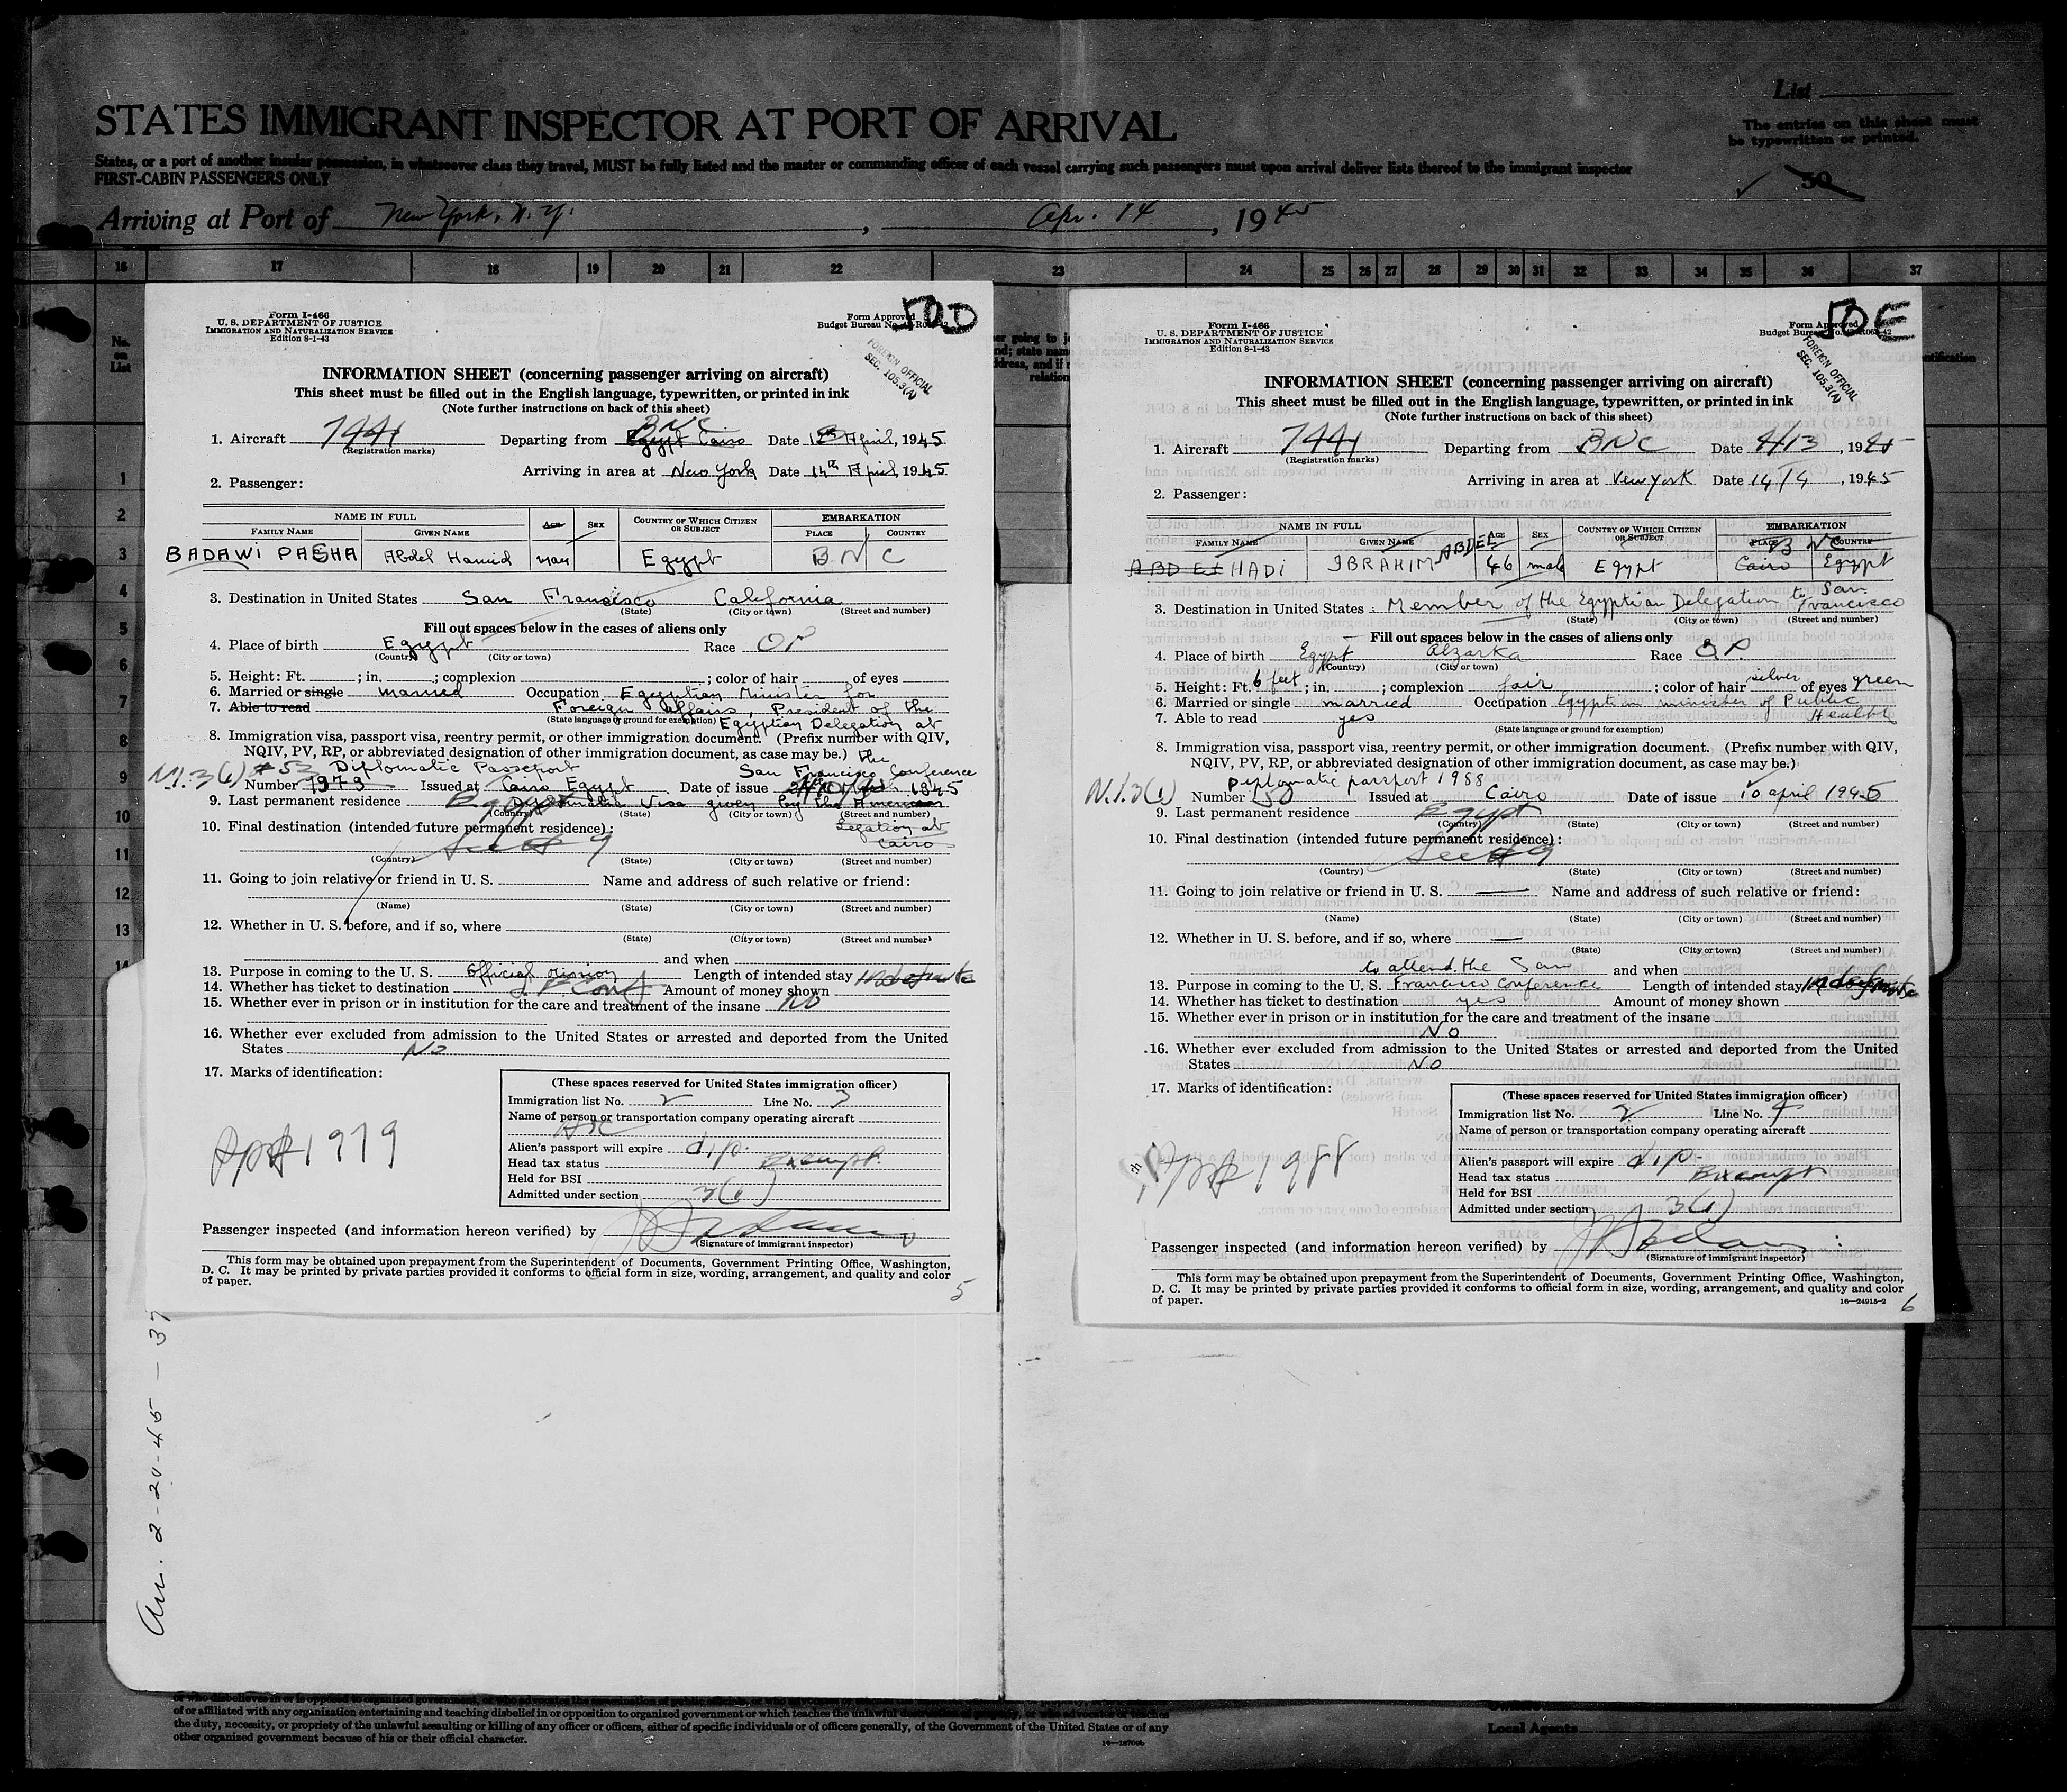 List
STATES IMMIGRANT INSPECTOR AT PORT OF ARRIVAL
The entries on this sheet must
be typewritten or printed.
States, or a port of another insular possession, in whatsoever class they travel, MUST be fully listed and the master or commanding officer of each vessel carrying such passengers must upon arrival deliver lists thereof to the immigrant inspector
FIRST-CABIN PASSENGERS ONLY
50
Arriving at Port of New York, N. Y. , Apr. 14 , 1945
16 17 18 19 20 21 22 23 24 25 26 27 28 29 30 31 32 33 34 35 36 37
No.
on
List
1
2
3
4
5
6
7
8
9
10
11
12
13
14
50D
Form I-466
U. S. DEPARTMENT OF JUSTICE
IMMIGRATION AND NATURALIZATION SERVICE
Edition 8-1-43
Form Approved
Budget Bureau No.
FOREIGN OFFICIAL
SEC. 105.3(A)
INFORMATION SHEET (concerning passenger arriving on aircraft)
This sheet must be filled out in the English language, typewritten, or printed in ink
(Note further instructions on back of this sheet)
BNC
1. Aircraft 7441 Departing from Egypt Cairo Date April, 1945
(Registration marks)
Arriving in area at New York Date 14th April, 1945
2. Passenger:
NAME IN FULL AGE SEX COUNTRY OF WHICH CITIZEN OR SUBJECT EMBARKATION
FAMILY NAME GIVEN NAME PLACE COUNTRY
BADAWI PASHA Abdel Hamid man Egypt B N C
3. Destination in United States San Francisco California
(State) (City or town) (Street and number)
Fill out spaces below in the cases of aliens only
4. Place of birth Egypt Race
(Country) (City or town)
5. Height: Ft. ; in. ; complexion ; color of hair of eyes
6. Married or single married Occupation Egyptian Minister for
7. Able to read Foreign Affairs, President of the
(State language or ground for exemption) Egyptian Delegation at
8. Immigration visa, passport visa, reentry permit, or other immigration document. (Prefix number with QIV,
NQIV, PV, RP, or abbreviated designation of other immigration document, as case may be.) the
#53 Diplomatic Passeport San Francisco Conference
Number 1979 Issued at Cairo Egypt Date of issue 1945
9. Last permanent residence Egypt Diplomatic Visa given by the American
(Country) (State) (City or town) (Street and number)
10. Final destination (intended future permanent residence): Legation at
Cairo
See # 9
(Country) (State) (City or town) (Street and number)
11. Going to join relative or friend in U. S. Name and address of such relative or friend:
(Name) (State) (City or town) (Street and number)
12. Whether in U. S. before, and if so, where
(State) (City or town) (Street and number)
and when
13. Purpose in coming to the U. S. Official mission Length of intended stay Indefinite
14. Whether has ticket to destination Amount of money shown
15. Whether ever in prison or in institution for the care and treatment of the insane No
16. Whether ever excluded from admission to the United States or arrested and deported from the United
States No
17. Marks of identification:
ppt # 1979
(These spaces reserved for United States immigration officer)
Immigration list No. 2 Line No. 3
Name of person or transportation company operating aircraft
Alien's passport will expire dip.
Head tax status Exempt
Held for BSI
Admitted under section 3(1)
Passenger inspected (and information hereon verified) by
(Signature of immigrant inspector)
This form may be obtained upon prepayment from the Superintendent of Documents, Government Printing Office, Washington,
D. C. It may be printed by private parties provided it conforms to official form in size, wording, arrangement, and quality and color
of paper.
5
50E
Form I-466
U. S. DEPARTMENT OF JUSTICE
IMMIGRATION AND NATURALIZATION SERVICE
Edition 8-1-43
Form Approved
Budget Bureau No.
FOREIGN OFFICIAL
SEC. 105.3(A)
INFORMATION SHEET (concerning passenger arriving on aircraft)
This sheet must be filled out in the English language, typewritten, or printed in ink
(Note further instructions on back of this sheet)
1. Aircraft 7441 Departing from BNC Date 4/13, 1945
(Registration marks)
Arriving in area at New York Date 14/4, 1945
2. Passenger:
NAME IN FULL AGE SEX COUNTRY OF WHICH CITIZEN OR SUBJECT EMBARKATION
FAMILY NAME GIVEN NAME PLACE COUNTRY
B NC
ABD EL HADI IBRAHIM ABDEL 46 male Egypt Cairo Egypt
3. Destination in United States Member of the Egyptian Delegation to San Francisco
(State) (City or town) (Street and number)
Fill out spaces below in the cases of aliens only
4. Place of birth Egypt Alzarka Race
(Country) (City or town)
5. Height: Ft. 6 feet ; in. ; complexion fair ; color of hair silver of eyes green
6. Married or single married Occupation Egyptian minister of Public
7. Able to read yes Health
(State language or ground for exemption)
8. Immigration visa, passport visa, reentry permit, or other immigration document. (Prefix number with QIV,
NQIV, PV, RP, or abbreviated designation of other immigration document, as case may be.)
Diplomatic passport 1988
N.I.3(1) Number 50 Issued at Cairo Date of issue 10 april 1945
9. Last permanent residence Egypt
(Country) (State) (City or town) (Street and number)
10. Final destination (intended future permanent residence):
See # 9
(Country) (State) (City or town) (Street and number)
11. Going to join relative or friend in U. S. Name and address of such relative or friend:
(Name) (State) (City or town) (Street and number)
12. Whether in U. S. before, and if so, where
(State) (City or town) (Street and number)
to attend the San and when
13. Purpose in coming to the U. S. Francisco Conference Length of intended stay Indefinite
14. Whether has ticket to destination yes Amount of money shown
15. Whether ever in prison or in institution for the care and treatment of the insane
No
16. Whether ever excluded from admission to the United States or arrested and deported from the United
States No
17. Marks of identification:
ppt # 1988
(These spaces reserved for United States immigration officer)
Immigration list No. 2 Line No. 4
Name of person or transportation company operating aircraft
Alien's passport will expire dip.
Head tax status Exempt
Held for BSI
Admitted under section 3(1)
Passenger inspected (and information hereon verified) by
(Signature of immigrant inspector)
This form may be obtained upon prepayment from the Superintendent of Documents, Government Printing Office, Washington,
D. C. It may be printed by private parties provided it conforms to official form in size, wording, arrangement, and quality and color
of paper.
16—24915-2
6
of or affiliated with any organization entertaining and teaching disbelief in or opposition to organized government or which teaches the unlawful
the duty, necessity, or propriety of the unlawful assaulting or killing of any officer or officers, either of specific individuals or of officers generally, of the Government of the United States or of any
other organized government because of his or their official character.
Local Agents